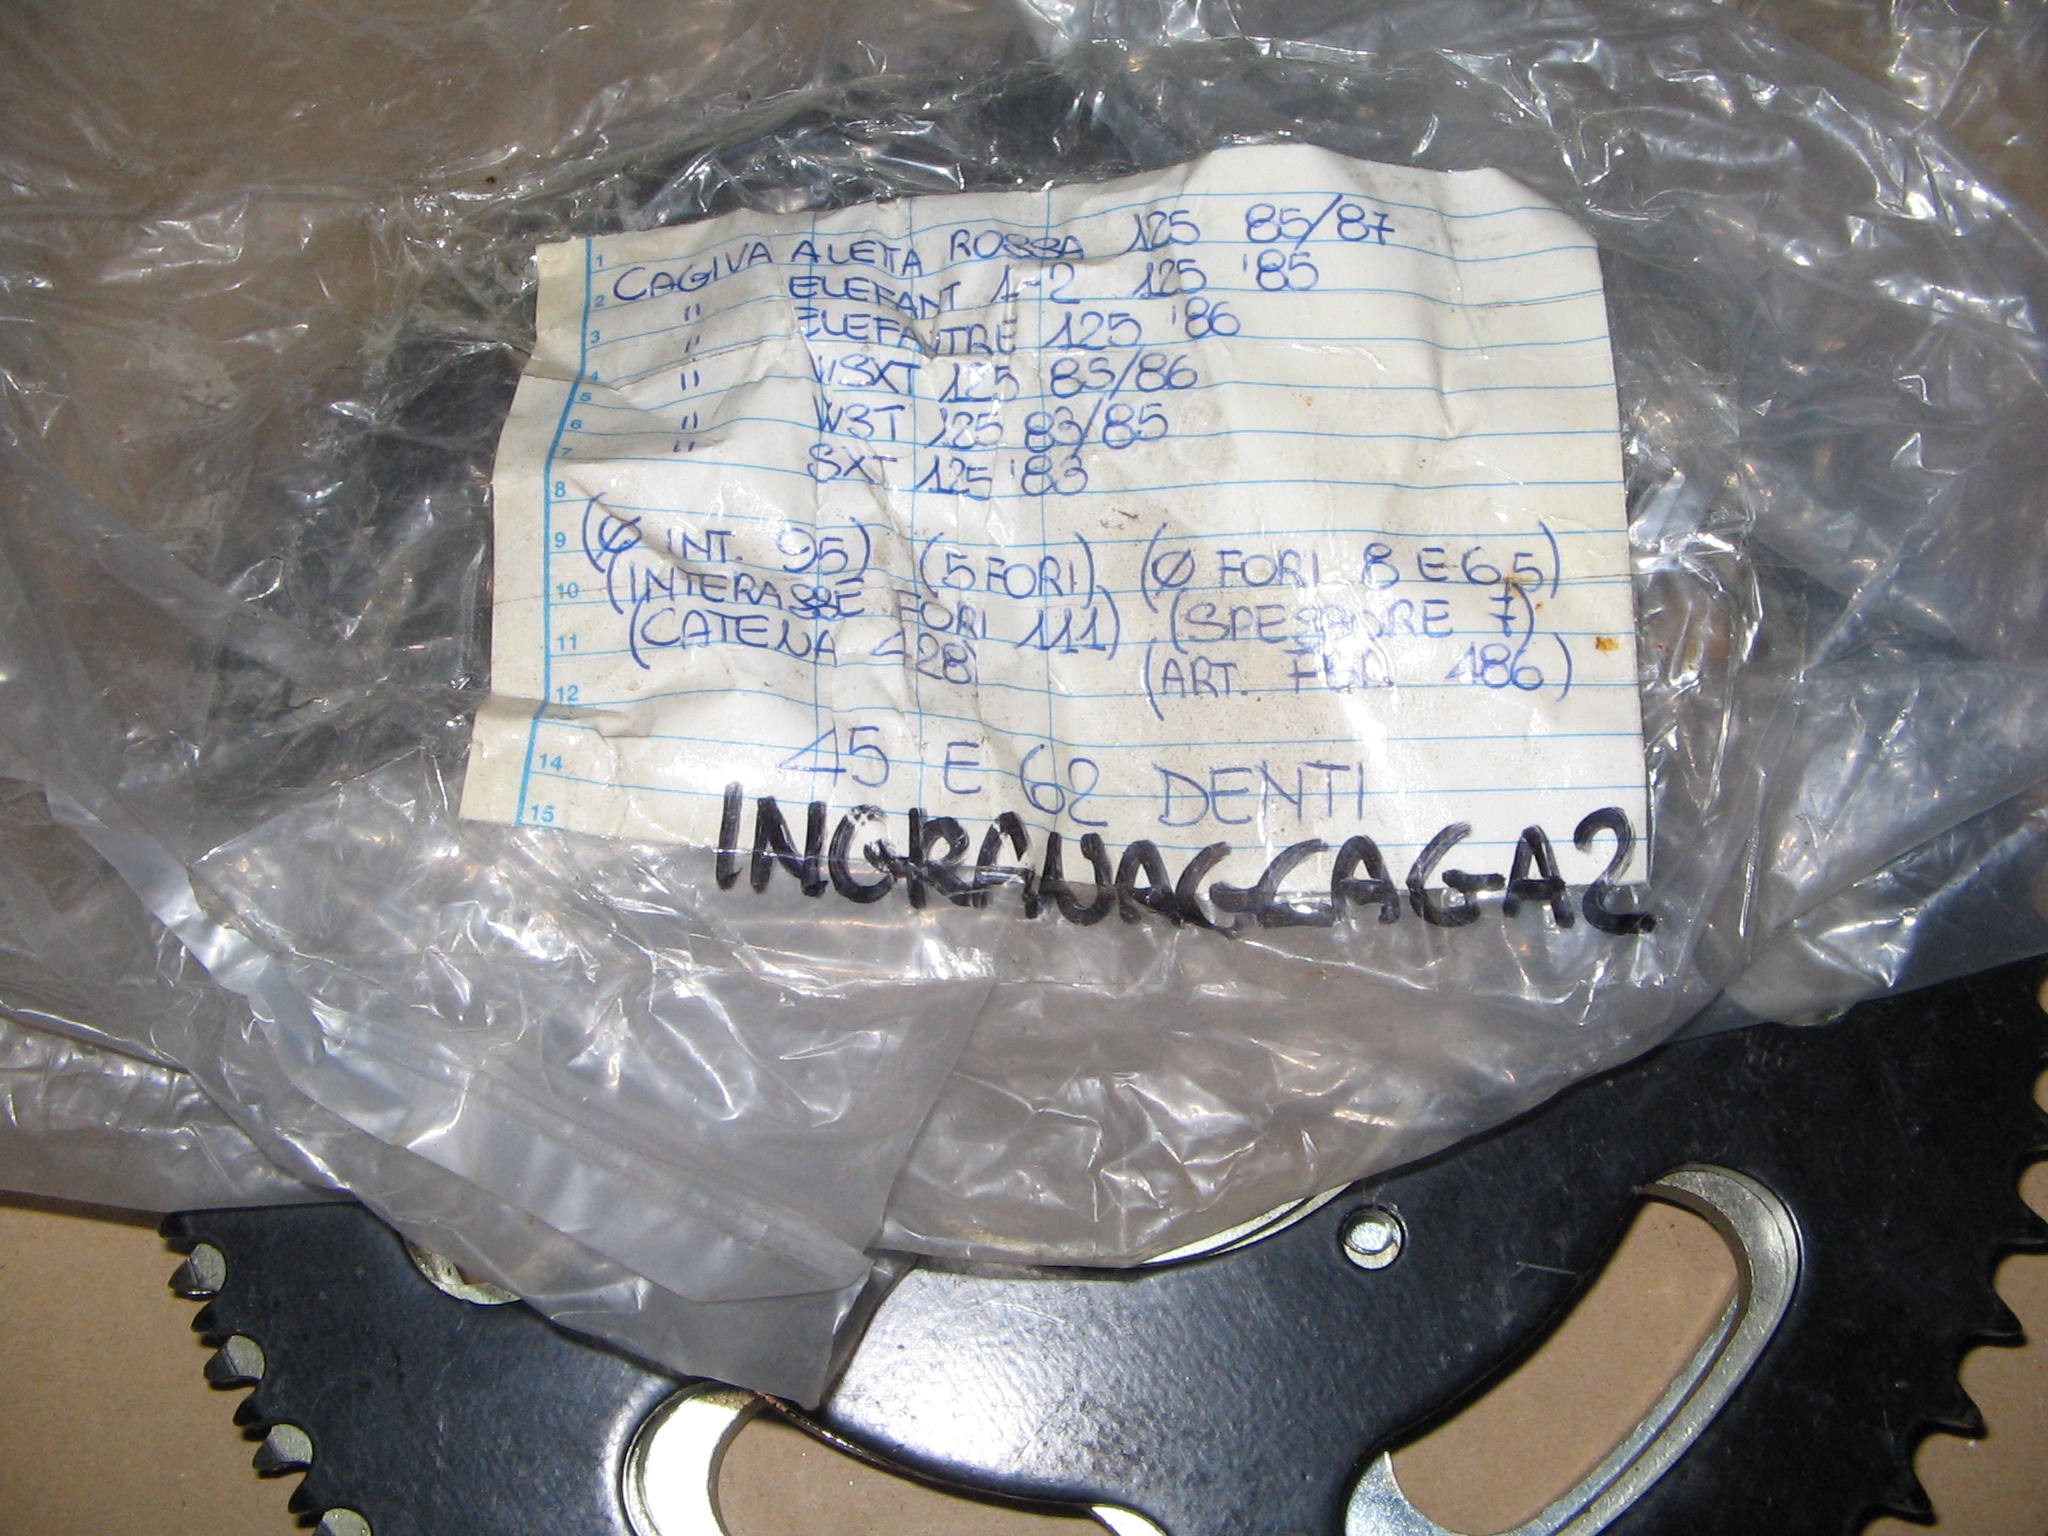 1
CAGIVA ALETTA ROSSA 125 85/87
2
" ELEFANT 1-2 125 '85
3
" ELEFANTRE 125 '86
4
" WSXT 125 83/86
5
6
" W3T 125 83/85
7
" SXT 125 '83
8
9
(Ø INT. 95) (5 FORI) (Ø FORI 8 E 6,5)
10
(INTERASSE FORI 111) (SPESSORE 7)
11
(CATENA 428) (ART. 486)
12
14
45 E 62 DENTI
15
INGRANAGCAGA2